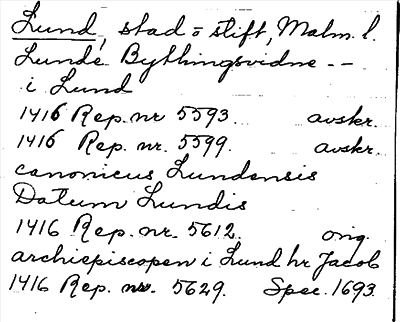 Lund, stad = stift, Malm. l.
Lunde Bythingsvidne --
i Lund
1416 Rep. nr 5593. avskr.
1416 Rep. nr. 5599. avskr.
canonicus Lundensis
Datum Lundis
1416 Rep. nr. 5612. orig.
archiepiscopen i Lund hr Jacob
1416 Rep. nr. 5629. Spec. 1693.